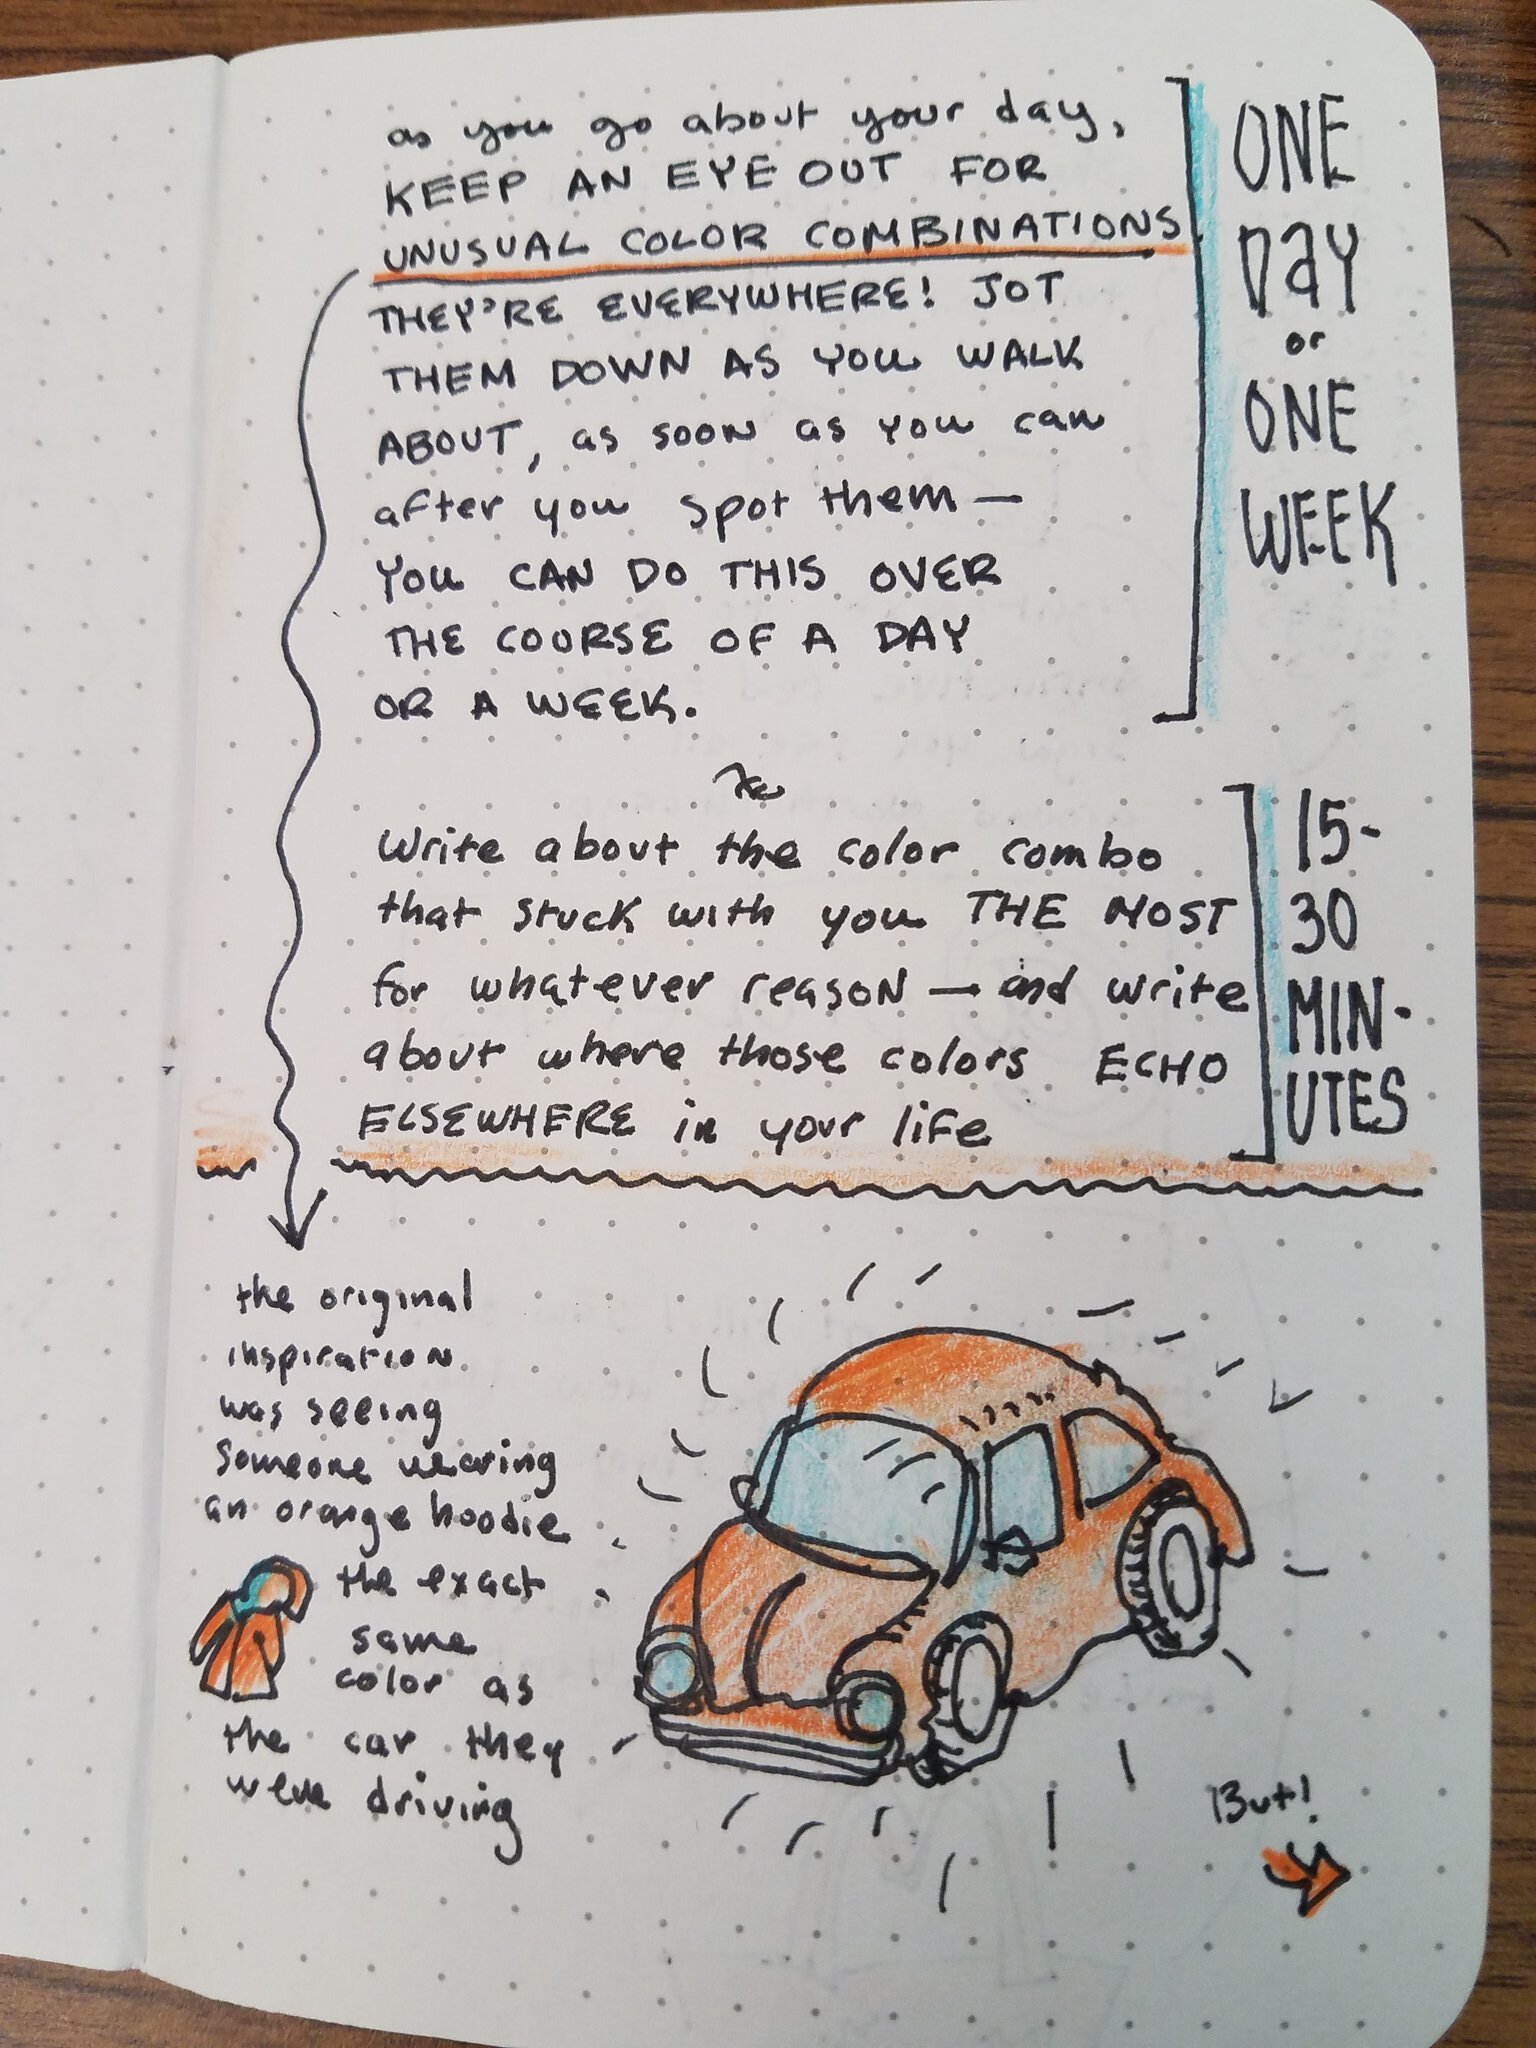 as you go about your day,
KEEP AN EYE OUT FOR
UNUSUAL COLOR COMBINATIONS
THEY'RE EVERYWHERE! JOT
THEM DOWN AS YOU WALK
ABOUT, as soon as you can
after you spot them —
YOU CAN DO THIS OVER
THE COURSE OF A DAY
OR A WEEK.
ONE
DAY
or
ONE
WEEK
Write about the color combo
that stuck with you THE MOST
for whatever reason — and write
about where those colors ECHO
ELSEWHERE in your life
15-
30
MIN-
UTES
the original
inspiration
was seeing
someone wearing
an orange hoodie
the exact
same
color as
the car they
were driving
But!